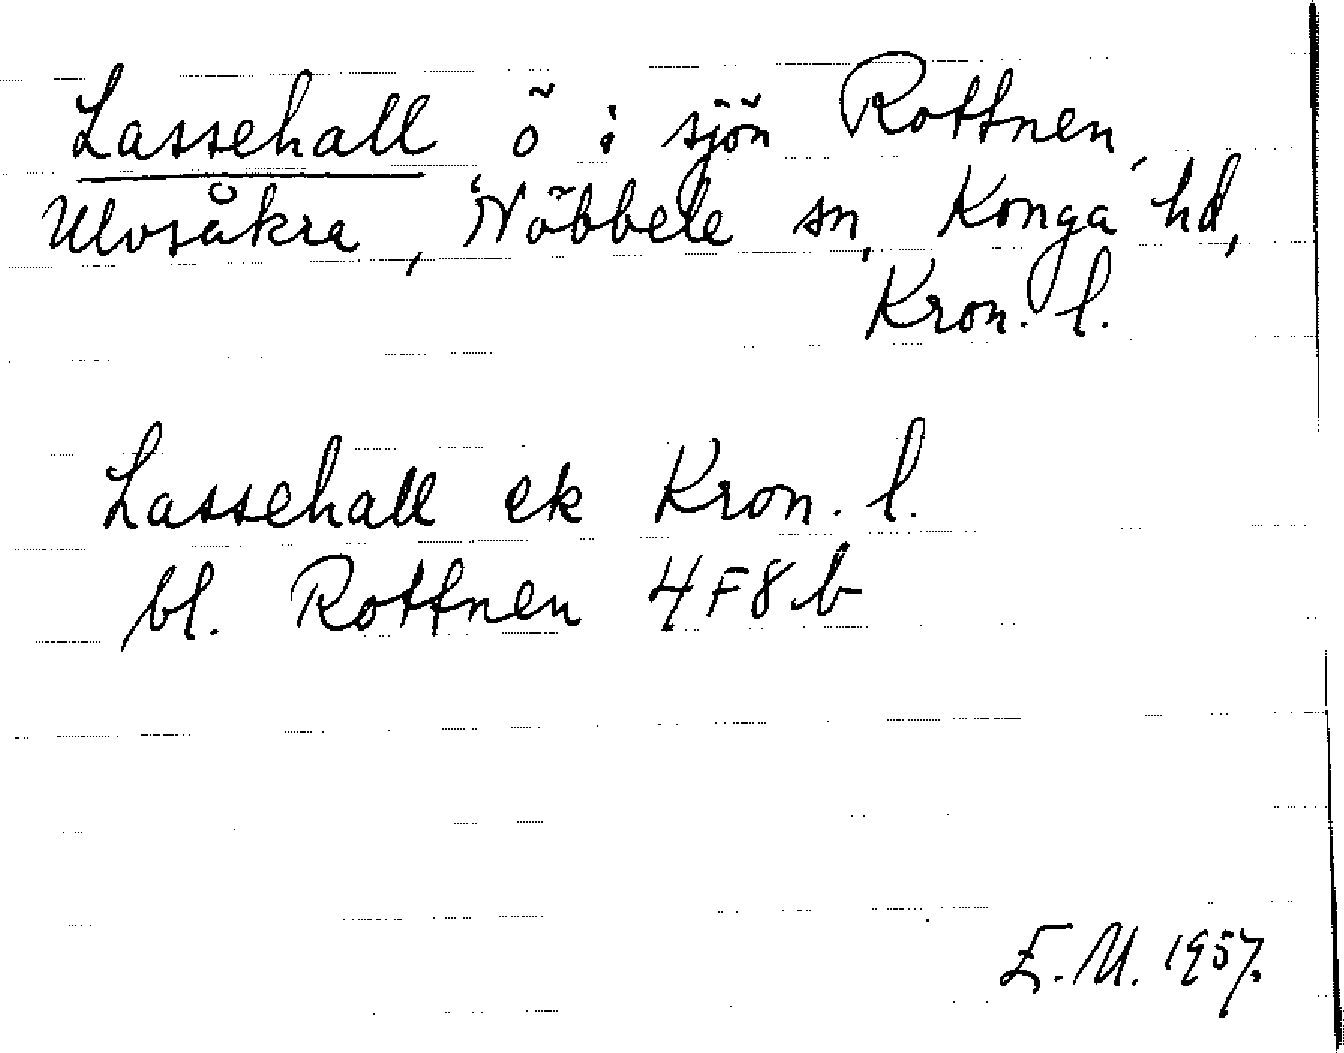 Lassehall ö i sjön Rottnen,
Ulvsåkra, Nöbbele sn, Konga hd,
Kron. l.
Lassehall ek Kron. l.
bl. Rottnen 4F8b
E. U. 1957.